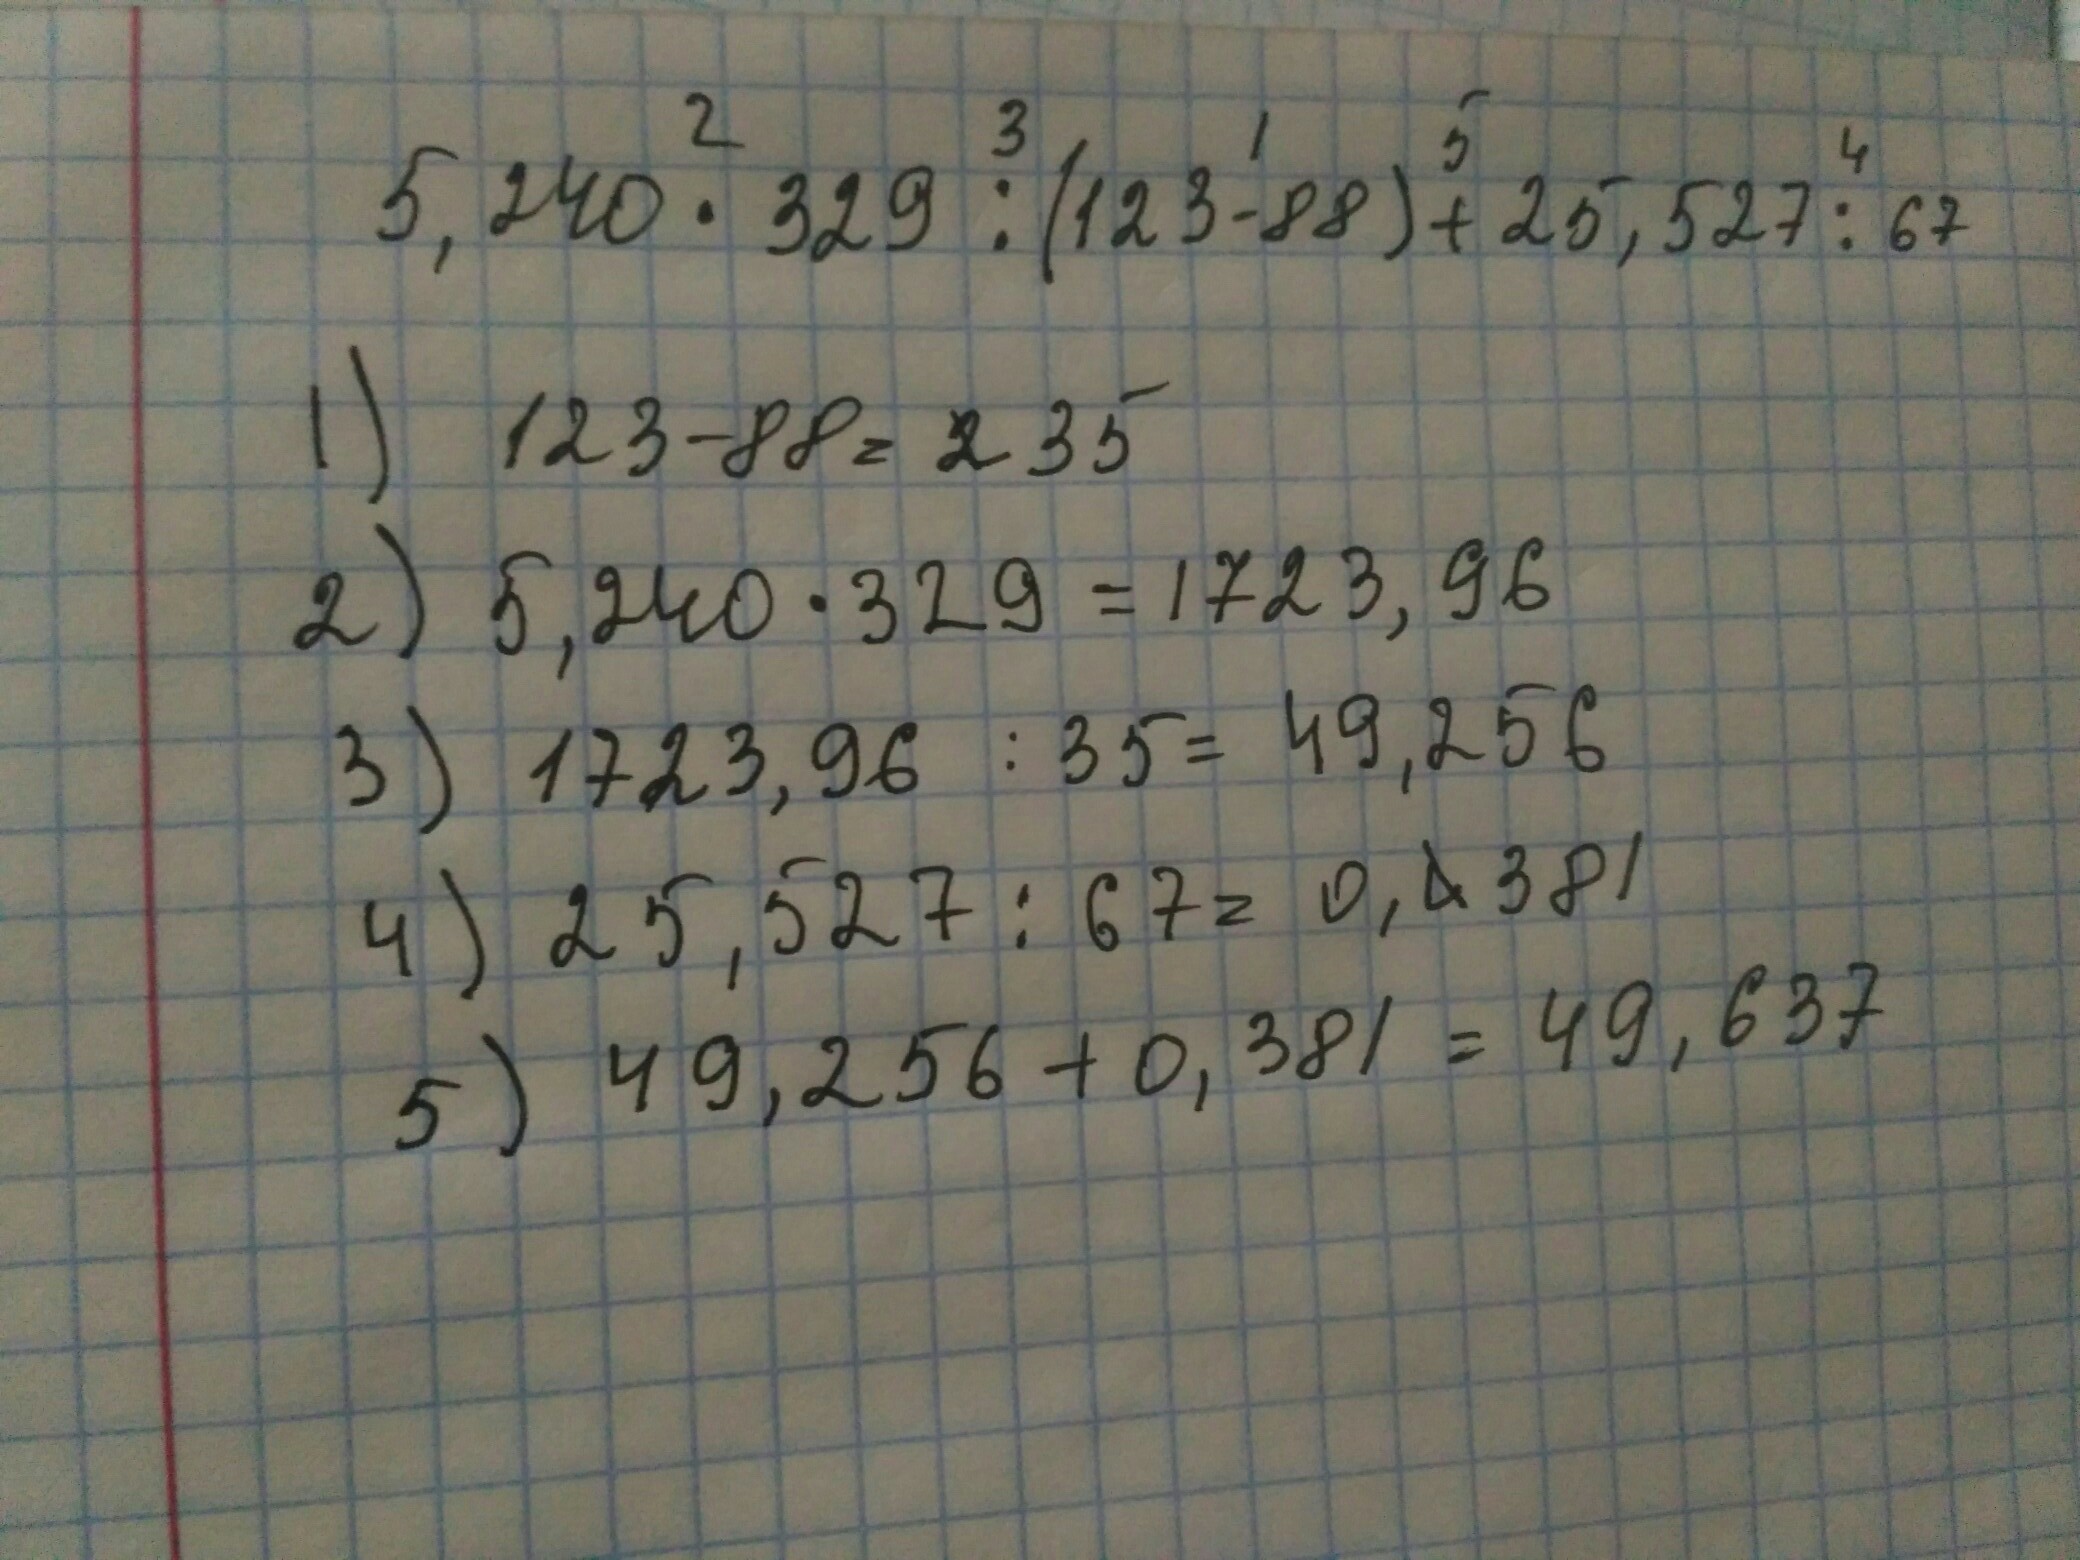 2 3 1 5 4
5,240 · 329 : (123-88) + 25,527 : 67
1) 123-88= 35
2) 5,240 · 329 = 1723,96
3) 1723,96 : 35= 49,256
4) 25,527 : 67= 0,381
5) 49,256 + 0,381 = 49,637